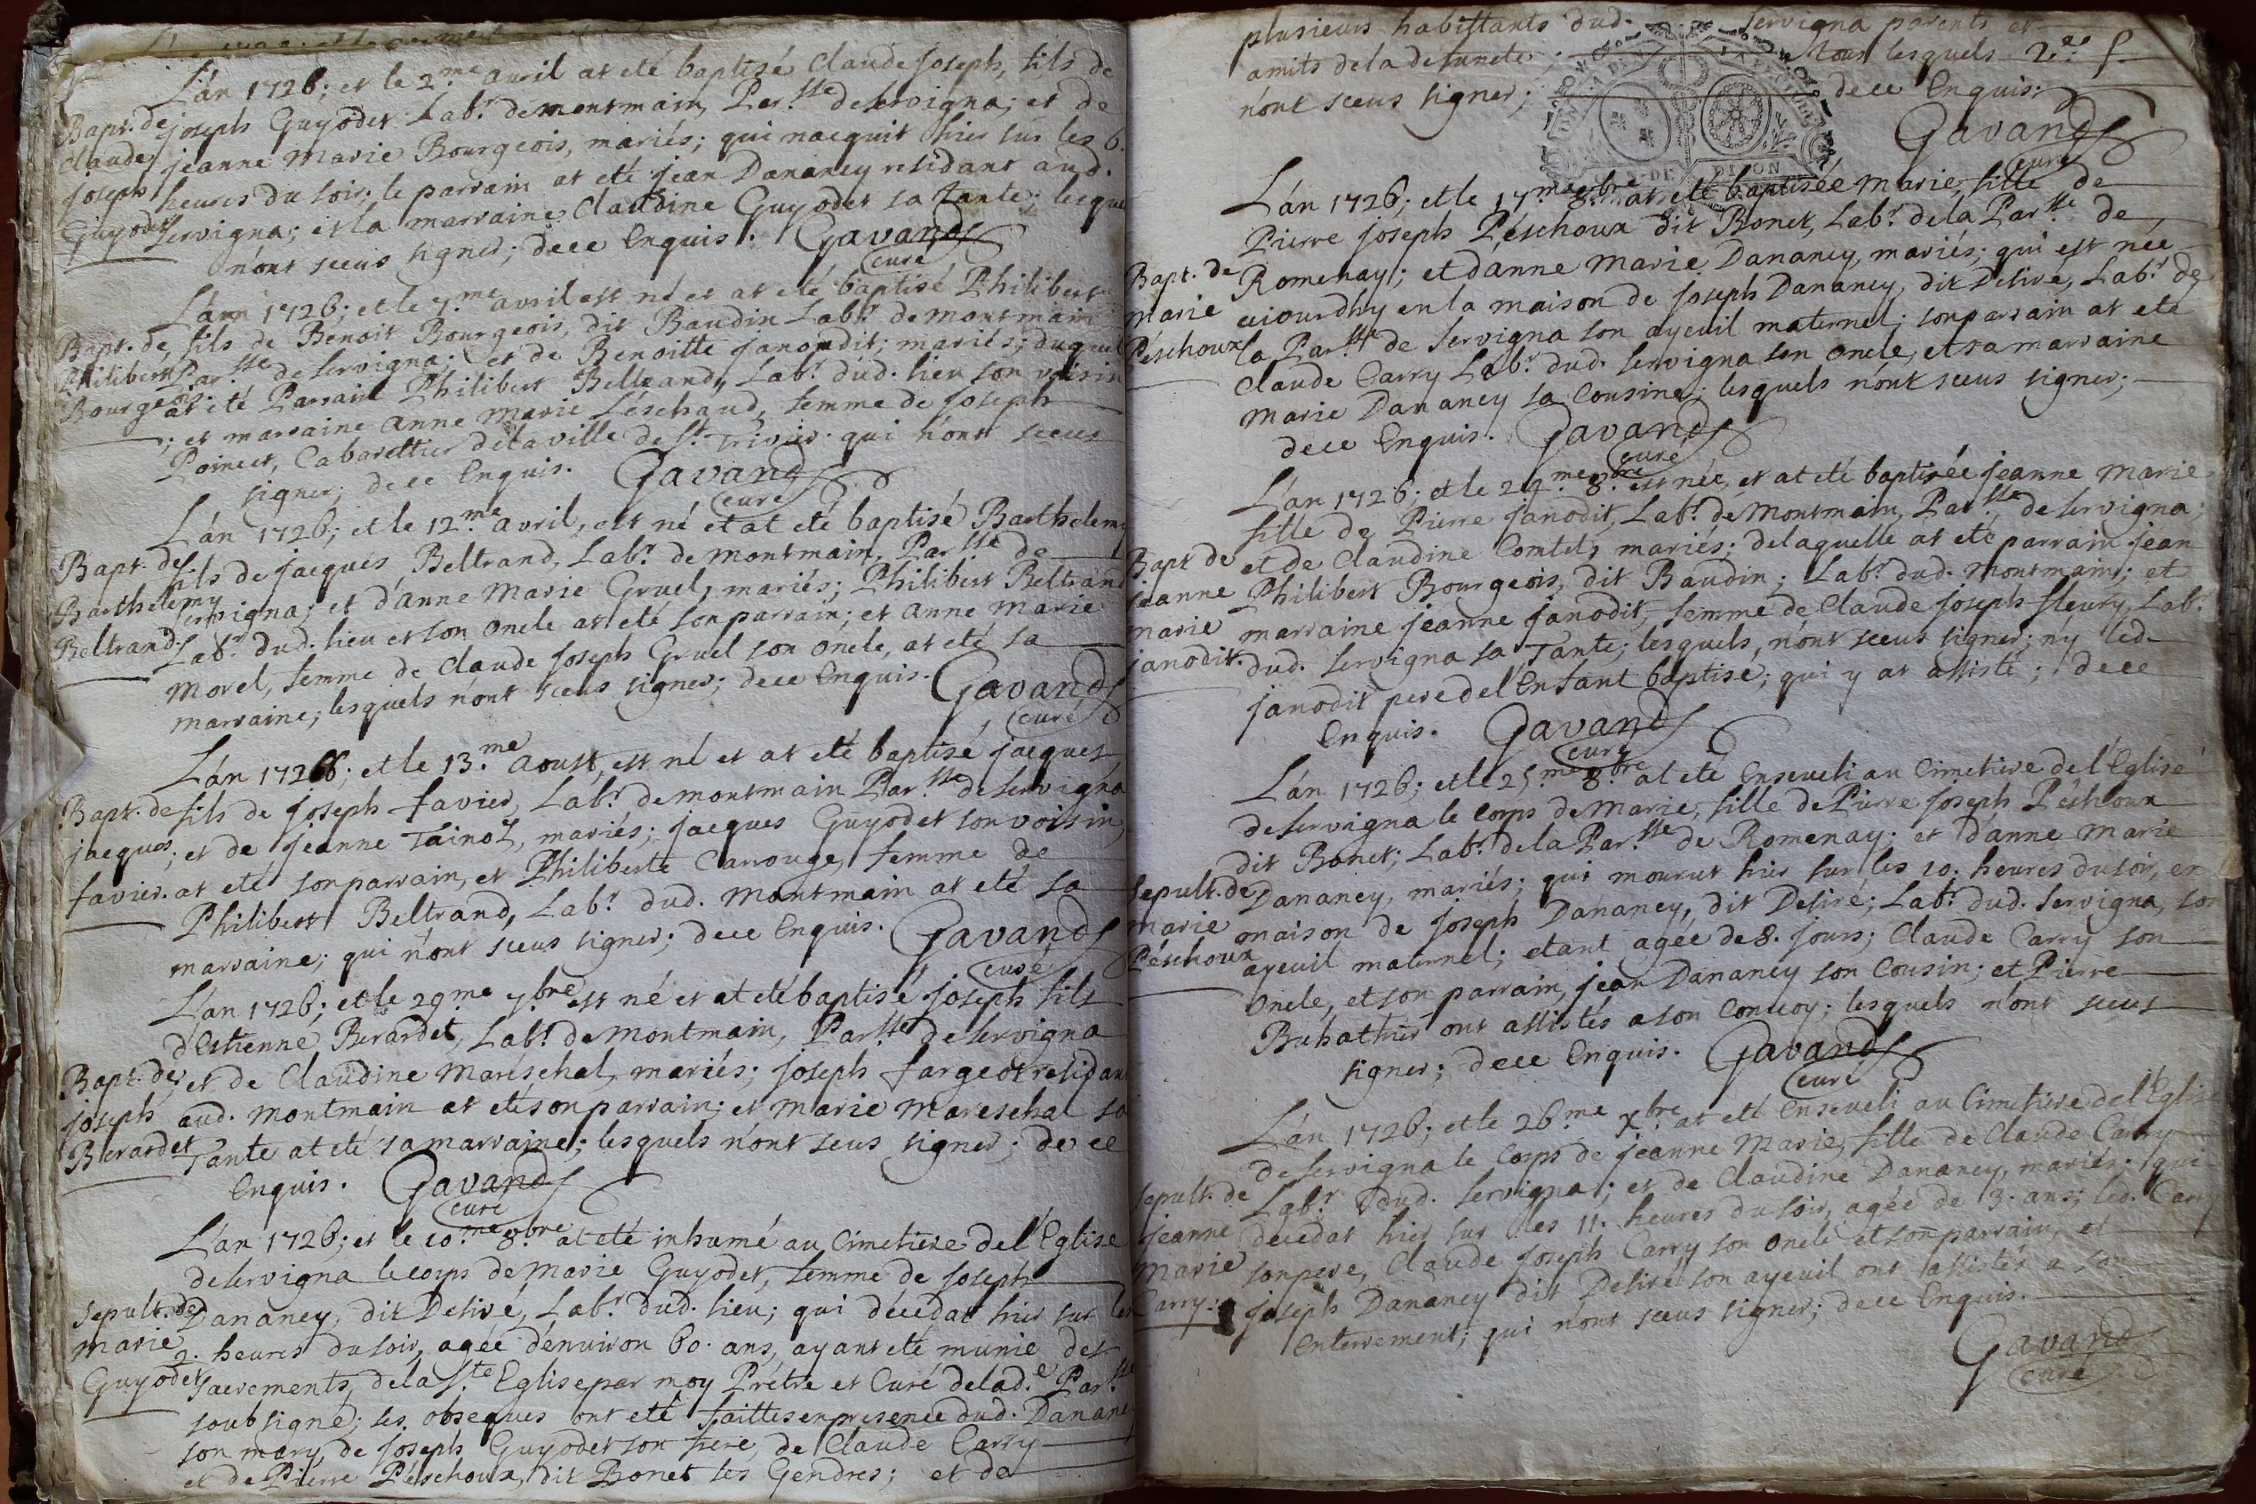 L'án 1726; et le 2.me avril at eté baptisé Claude Joseph, fils de
Bapt. de
Claude
Joseph
Guyodet
joseph Guyodet Lab.r de montmain, Par.sse de servigna; et de
jeanne Marie Bourgeois, mariés; qui nacquit hier sur les 6.
heures du soir; le parrain at eté jean Dananey residant aud.
servigna; et la marraine Claudine Guyodet sa tante; lesque
n'ont sceus signer; de ce Enquis. Gavand
curé
L'án 1726; et le 7.me avril est né et at eté baptisé Philibert
Bapt. de
Philibert
Bourgeois.
fils de Benoit Bourgeois, dit Baudin Lab.r de montmain
Par.sse de servigna; et de Benoitte Janoudit; mariés; duquel
at eté Parrain Philibert Beltrand, Lab.r dud. lieu son voisin
; et marraine anne Marie Léschaud, femme de Joseph
Poincet, Cabarettier de la ville de S.t Trivier. qui n'ont sceus
signer; de ce Enquis. Gavand
curé
L'án 1726; et le 12.me avril, est né et at eté baptisé Barthelemy
Bapt. de
Barthelemy
Beltrand.
fils de jacques Beltrand, Lab.r de montmain, Par.sse de
servigna; et d'anne Marie Gruel, mariés; Philibert Beltrand
Lab.r dud. lieu et son oncle at eté son parrain; et anne Marie
Morel, femme de Claude Joseph Gruel son oncle, at eté sa
marraine; lesquels n'ont sceus signer; de ce Enquis. Gavand
curé
L'án 1726; et le 13.me aoust, est né et at eté baptisé jacques
Bapt. de
jacques
favier.
fils de joseph favier, Lab.r de montmain Par.sse de servigna
; et de jeanne Tainoz, mariés; jacques Guyodet son voisin,
at eté son parrain, et Philiberte Carrouge, femme de
Philibert Beltrand, Lab.r dud. Montmain at eté sa
marraine; qui n'ont sceus signer; de ce Enquis. Gavand
curé
L'án 1726; et le 29.me 7.bre est né et at eté baptisé joseph fils
d'Estienne Berardet, Lab.r de Montmain, Par.sse de servigna
Bapt. de
joseph
Berardet
et de Claudine Maréschal, mariés; joseph fargeot residan
aud. Montmain at eté son parrain; et Marie Mareschal sa
Tante at eté sa marraine; lesquels n'ont seus signer; de ce
Enquis. Gavand
curé
L'án 1726; et le 10.me 8.bre at eté inhumé au Cimetiere de l'Eglise
de servigna le corps de Marie Guyodet, femme de joseph
sepult. de
Marie
Guyodet
Dananey, dit Desiré, Lab.r dud. lieu; qui décédat hier sur les
2. heures du soir, agée d'environ 60. ans, ayant eté munie des
sacrements, de la S.te Eglise par moy Prêtre et Curé de lad.e Par.sse
soubsigné; ses obseques ont eté faittes en presence dud. Dananey
son mary, de joseph Guyodet son frere, de Claude Carry
et de Pierre Péschoux, dit Bonet ses Gendres; et de
plusieurs habittants dud. servigna parents et
amits de la defuncte; tous lesquels
n'ont sceus signer; de ce Enquis.
Gavand
curé
L'án 1726; et le 17.me 8.bre at eté baptisée Marie, fille de
Pierre joseph Péschoux dit Bonet, Lab.r de la Par.sse de
Bapt. de
Marie
Péschoux
Romenay; et d'anne Marie Dananey, mariés; qui est née
aiourdhy en la maison de joseph Dananey, dit Desiré, Lab.r de
la Par.sse de servigna son ayeuil maternel; son parrain at eté
Claude Carry Lab.r dud. servigna son oncle, et sa marraine
Marie Dananey sa Cousine; lesquels n'ont sceus signer;
de ce Enquis. Gavand
curé
L'án 1726; et le 24.me 8.bre est née, et at eté baptisée jeanne Marie
fille de Pierre Janodit, Lab.r de Montmain, Par.sse de servigna;
Bapt de
jeanne
Marie
janodit.
et de Claudine Comtet, mariés; de laquelle at eté parrain jean
Philibert Bourgeois, dit Baudin; Lab.r dud. Montmain; et
marraine jeanne Janodit, femme de Claude joseph fleury, Lab.r
dud. servigna sa Tante; lesquels, n'ont sceus signer; n'y led.
janodit pere de l'Enfant baptisé; qui y at assisté; de ce
Enquis. Gavand
curé
L'án 1726; et le 25.me 8.bre at eté Enseveli au Cimetiere de l'Eglise
de servigna le corps de Marie, fille de Pierre joseph Péschoux
sepult. de
Marie
Péschoux
dit Bonet; Lab.r de la Par.sse de Romenay; et d'anne Marie
Dananey, mariés; qui mourut hier sur les 10. heures du soir, en
maison de joseph Dananey, dit Desiré; Lab.r dud. servigna, son
ayeuil maternel; etant agée de 8. jours; Claude Carry son
oncle, et son parrain, jean Dananey son Cousin; et Pierre
Buhathier ont assistés a son Convoy; lesquels n'ont sceus
signer; de ce Enquis. Gavand
curé
L'án 1726; et le 26.me X.bre at eté Enseveli au Cimetiere de l'Eglise
de servigna le Corps de jeanne Marie, fille de Claude Carry
sepult. de
jeanne
Marie
Carry.
Lab.r dud. servigna; et de Claudine Dananey, mariés; qui
décedat hier sur les 11. heures du soir, agée de 3. ans; led. Carry
son pere, Claude joseph Carry son oncle et son parrain, et
joseph Dananey dit Desiré son ayeuil ont assistés a son
enterrement; qui n'ont sceus signer; de ce Enquis.
Gavand
curé